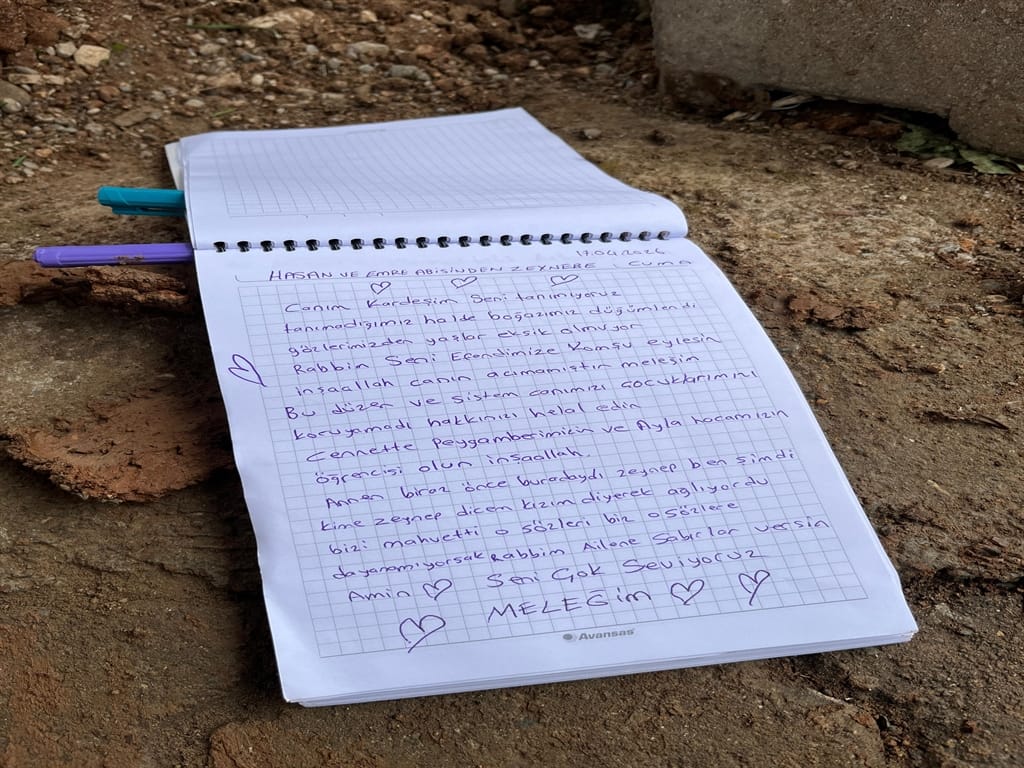 17.04.2026
HASAN VE EMRE ABİSİNDEN ZEYNEBE CUMA
Canım Kardeşim Seni tanımıyoruz
tanımadığımız halde boğazımız düğümlendi
gözlerimizden yaşlar eksik olmuyor
Rabbin Seni Efendimize Komşu eylesin
inşaallah canın acımamıştır meleğim
Bu düzen ve sistem canımızı çocuklarımızı
koruyamadı hakkınızı helal edin
Cennette Peygamberimizin ve Ayla hocamızın
öğrencisi olun inşaallah.
Annen biraz önce buradaydı zeynep ben şimdi
kime zeynep dicem kızım diyerek ağlıyordu
bizi mahvetti o sözleri biz o sözlere
dayanamıyorsak Rabbim Ailene Sabırlar versin
Amin Seni Çok Seviyoruz
MELEĞİM
Avansas